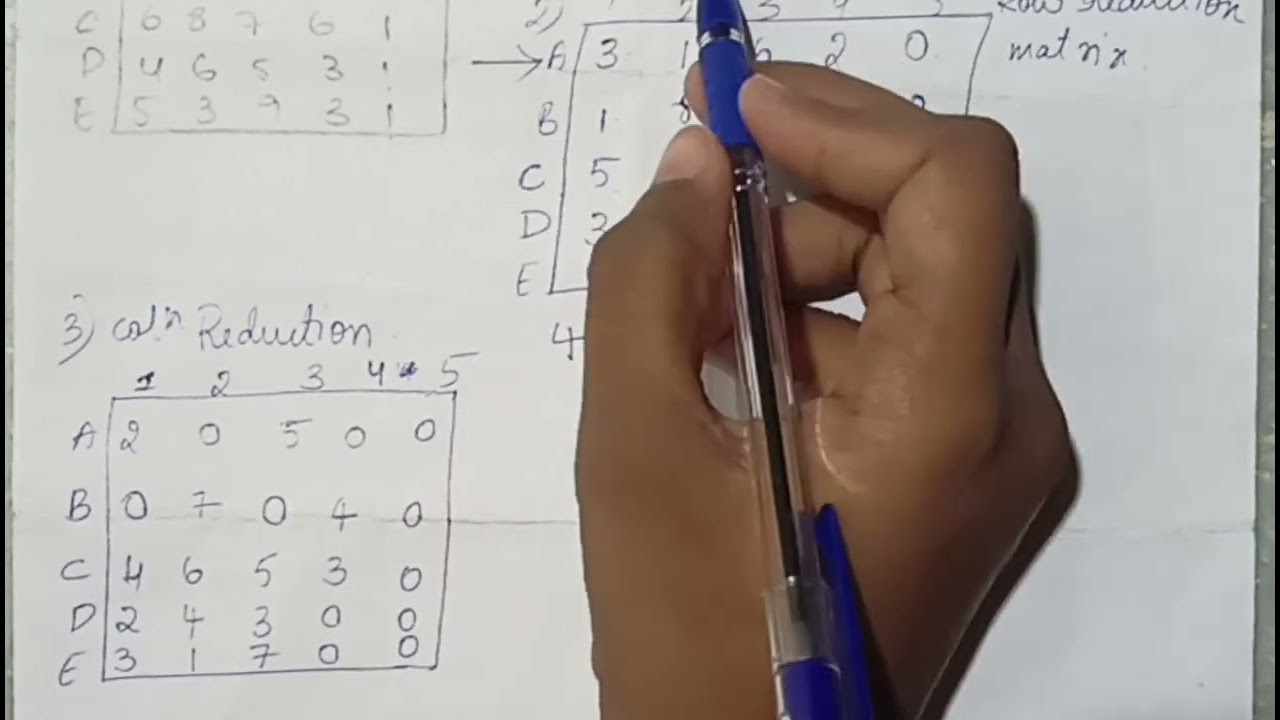 C 6 8 7 6 1
D 4 6 5 3 1
E 5 3 9 3 1
2)
matrix
→ A 3 1 6 2 0
B 1 8
C 5
D 3
E
4
3) col.n Reduction
1 2 3 4 5
A 2 0 5 0 0
B 0 7 0 4 0
C 4 6 5 3 0
D 2 4 3 0 0
E 3 1 7 0 0